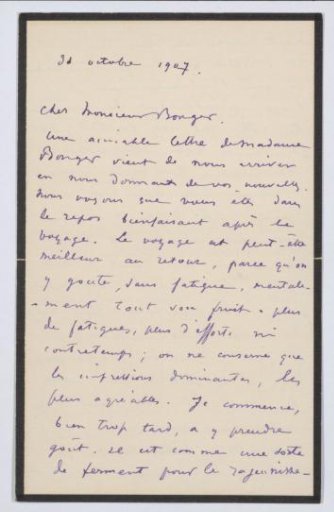 31 octobre 1907.
Cher Monsieur Bonger.
Une aimable lettre de Madame
Bonger vient de nous arriver
en nous donnant de vos nouvelles.
nous voyons que vous êtes dans
le repos bienfaisant après le
voyage. Le voyage est peut-être
meilleur au retour, parce qu'on
y goute, sans fatigue, mentale-
-ment tout son fruit. plus
de fatigues, plus d'efforts ni
contretemps; on ne conserve que
les impressions dominantes, les
plus agréables. Je commence,
bien trop tard, a y prendre
goût. Il est comme une sorte
de ferment pour le rajeunisse-